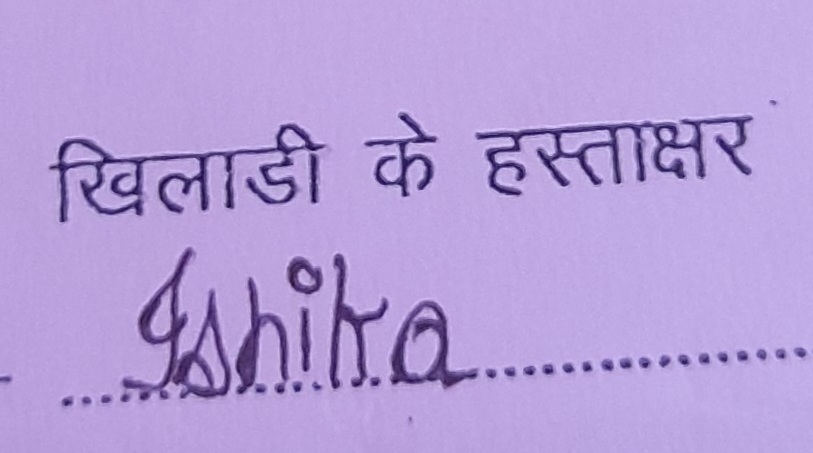 खिलाडी के हस्ताक्षर
Ishika